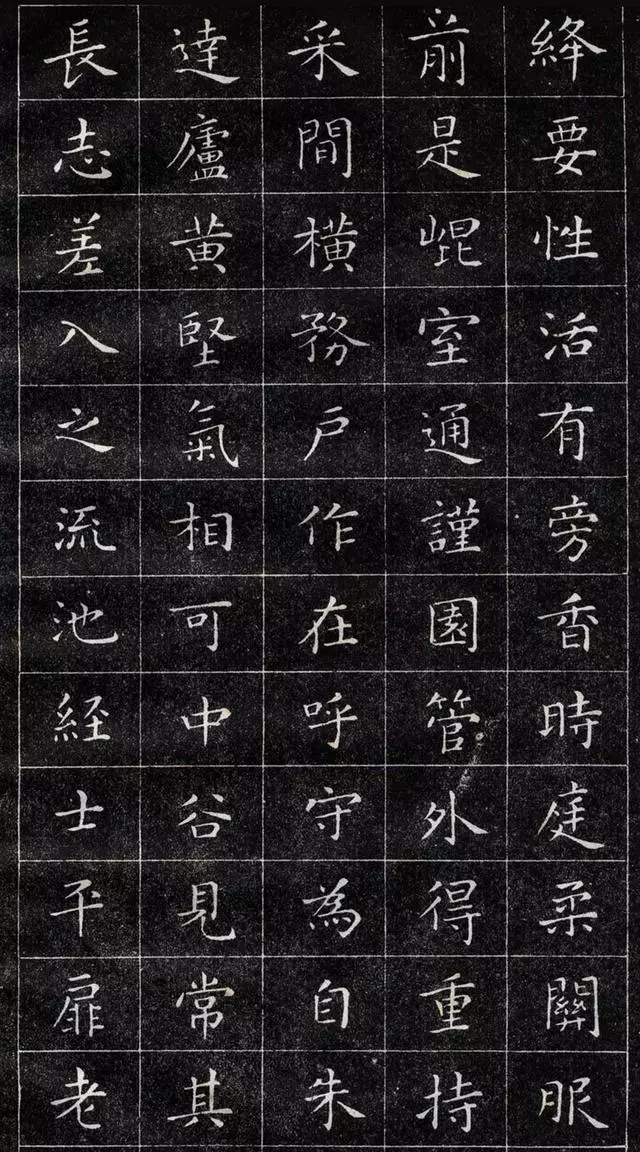 絳要性活有旁香時庭柔關服
前是崐室通謹園管外得重持
采間橫務戶作在呼守為自朱
達廬黃堅氣相可中谷見常其
長志差入之流池経士平扉老